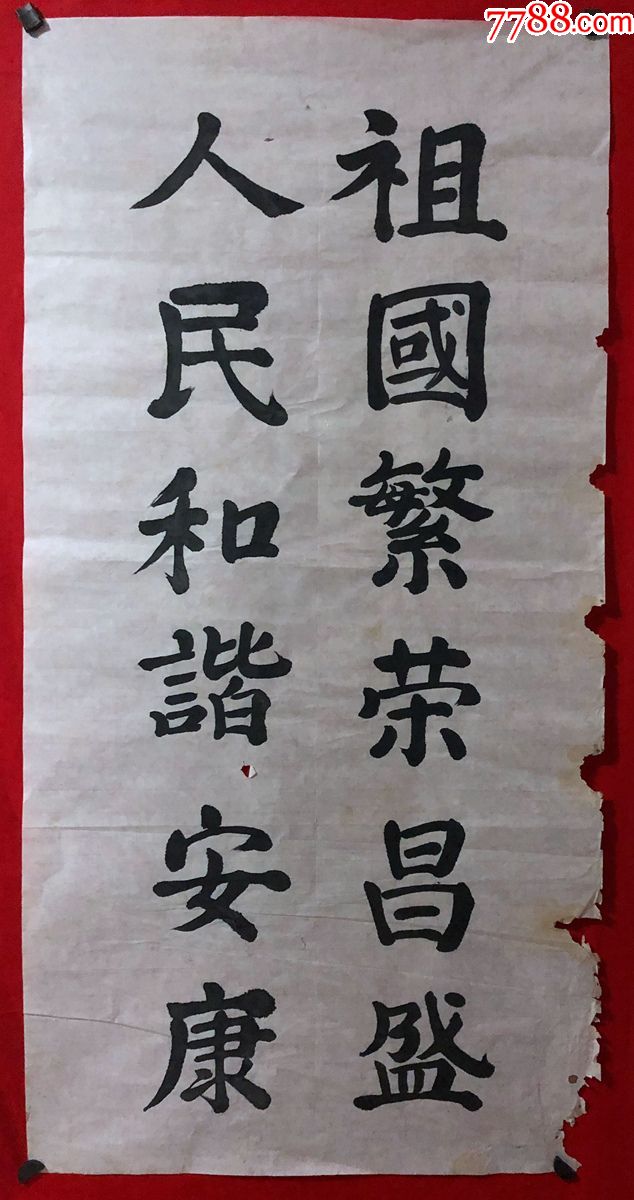 7788.com
祖國繁荣昌盛
人民和諧安康